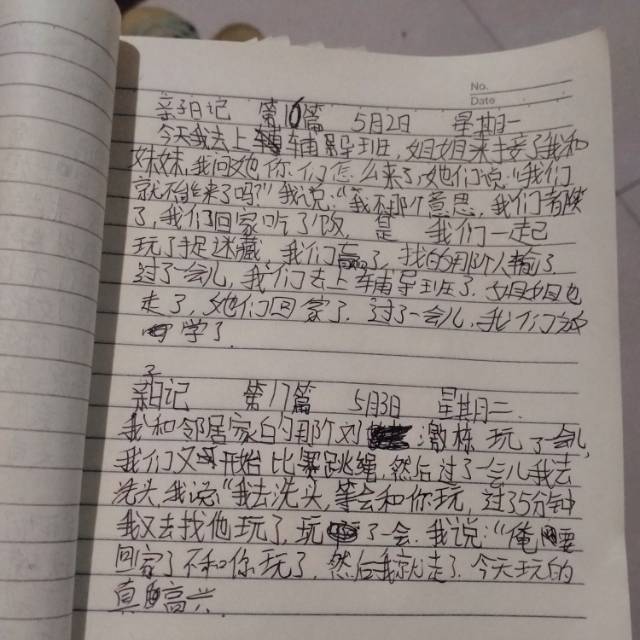 No.
Date
亲子日记 第16篇 5月2日 星期一
今天我去上辅导班,姐姐来接了我和
妹妹,我问她你们怎么来了,她们说:“我们
就不能来了吗?”我说:“我不那个意思,我们都笑
了,我们回家吃了饭 我们一起
玩了捉迷藏,我们赢了,找的那个人输了
过了一会儿,我们去上辅导班了,姐姐也
走了,她们回家了,过了一会儿,我们放
学了.
亲子日记 第17篇 5月3日 星期二.
我和邻居家的那个刘 激栋 玩了会儿,
我们又开始比赛跳绳,然后过了一会儿我去
洗头,我说“我去洗头,等会和你玩,过了5分钟
我又去找他玩了,玩了一会,我说:“俺要
回家了不和你玩了,然后我就走了.今天玩的
真高兴.